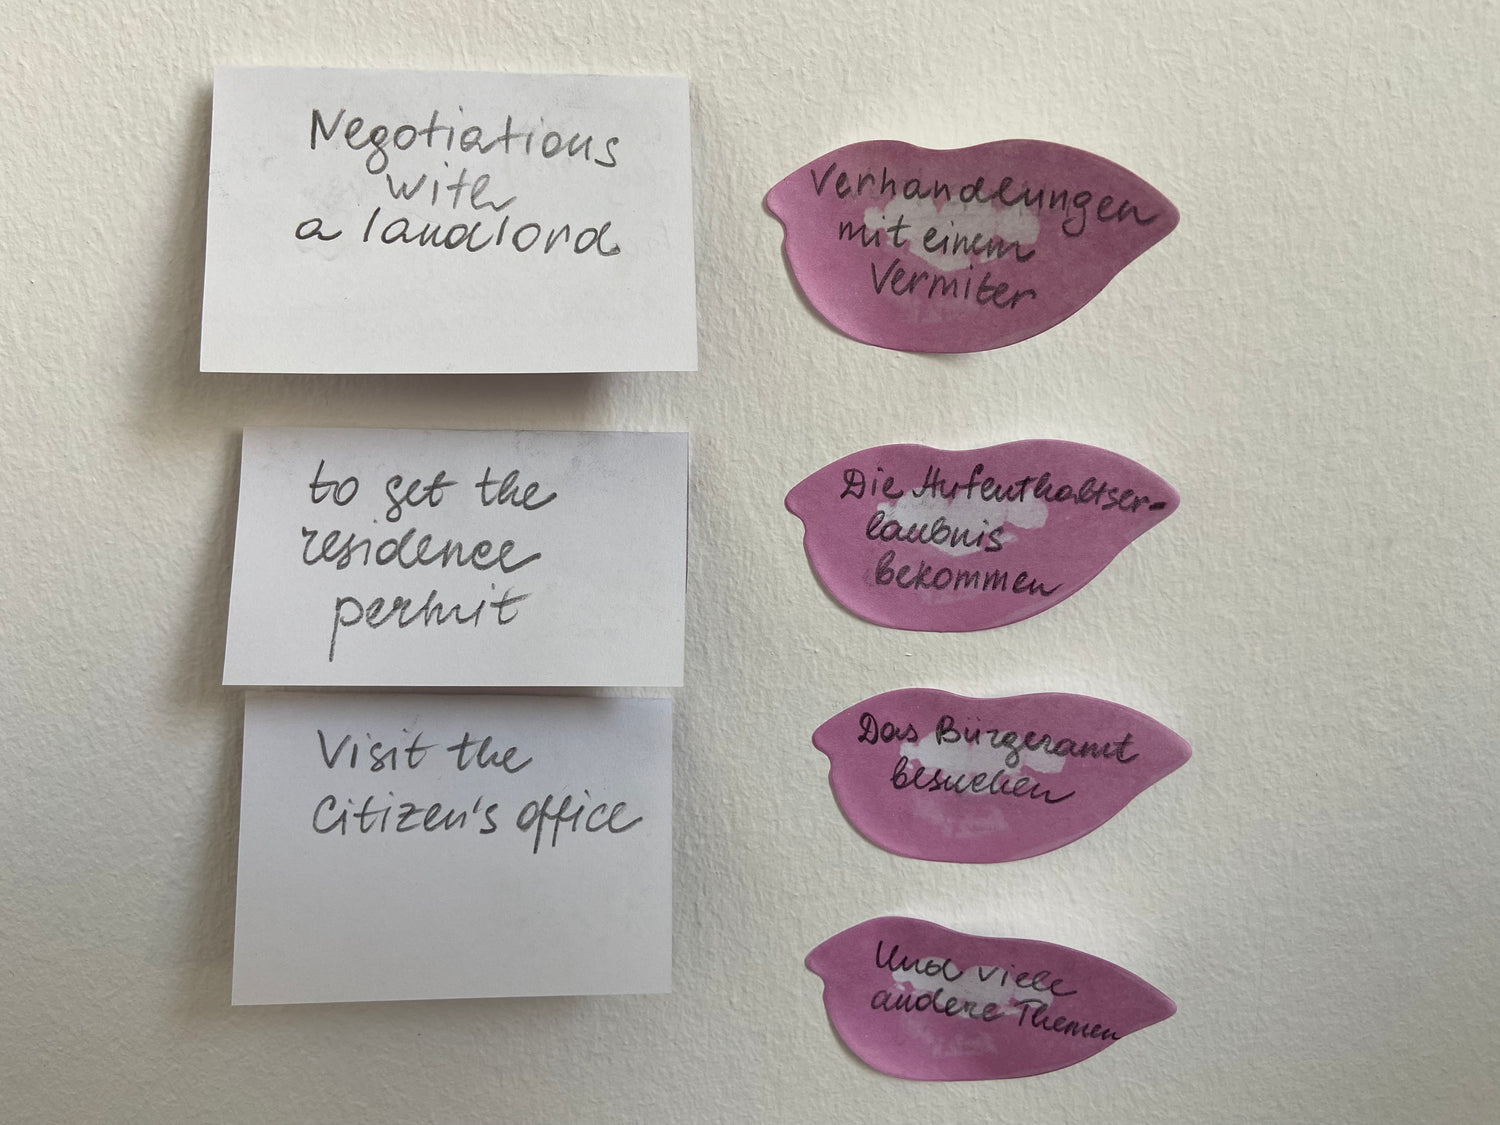 Negotiations
with
a landlord
Verhandlungen
mit einem
Vermiter
to get the
residence
permit
Die Aufenthaltser-
laubnis
bekommen
Visit the
Citizen's office
Das Bürgeramt
besuchen
Und viele
andere Themen